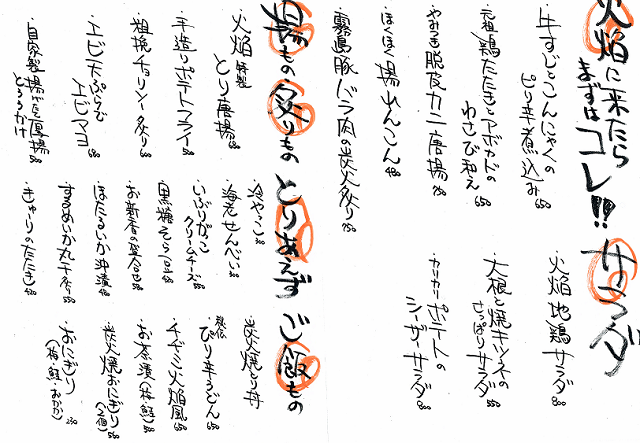 火焔に来たら
まずは コレ!!
牛すじとこんにゃくの
ピリ辛煮込み 650
元祖 鶏たたきとアボカドの
わさび和え 650
やみつき 脱皮カニ唐揚
ほくほく揚れんこん 480
霧島豚バラ肉の炭火炙り 750
サラダ
火焔地鶏サラダ 800
大根と焼キツネの
さっぱりサラダ 550
カリカリポテトの
シーザーサラダ 600
揚もの 炙りもの
火焔 特製 とり唐揚 680
手造りポテトフライ 450
粗挽チョリソー炙り 600
エビ天ぷら
エビマヨ 680
自家製揚だし厚揚
とろろかけ 580
とりあえず
冷やっこ 300
海老せんべい 300
いぶりがっこ
クリームチーズ 500
黒糖そら豆
お新香の盛合せ
ほたるいか沖漬
するめいか丸干炙り
きゅうりのたたき
ご飯もの
炭火焼とり丼
秘伝 ぴり辛うどん 650
チヂミ火焔風 650
お茶漬(梅・鮭)
炭火焼おにぎり(2個)
おにぎり
(梅 鮭 おかか) 250